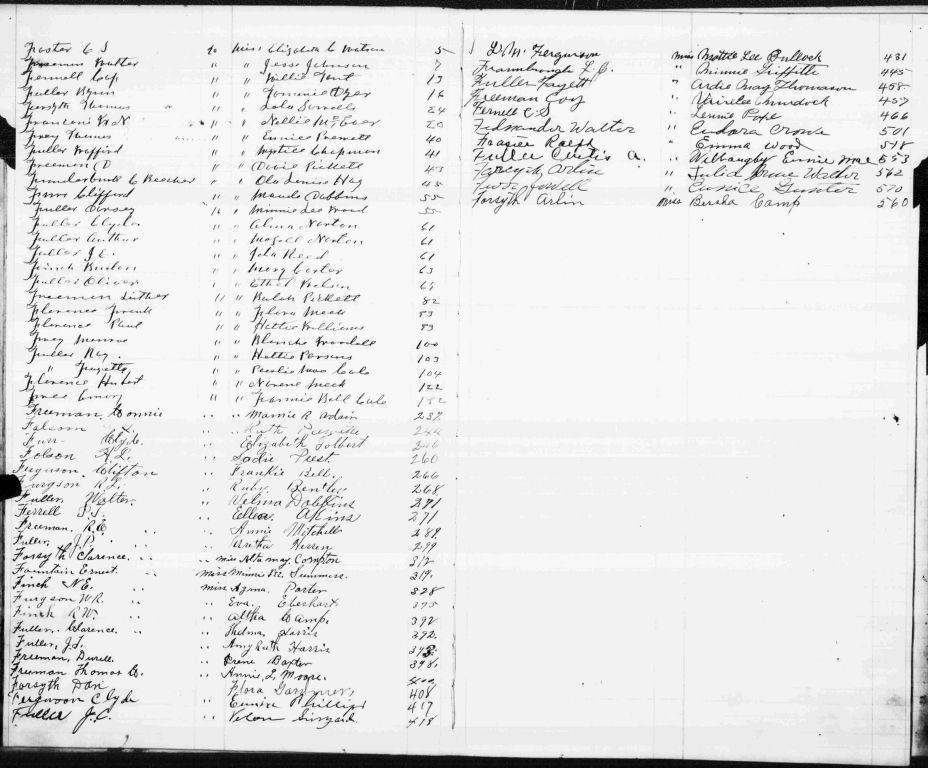 Foster C S to Miss Elizabeth C Watson 5
Freeman Walter " " Jesse Johnson 7
Fennell Coy " " Willie Tent 13
Fuller Wynn " " Tommie Dyer 16
Forsyth Thomas " " Lola Sorrells 24
" " Nellie McEver 20
Frey Thomas " " Eunice 40
Fuller Wofford " " Myrtice Chapman 41
Freeman D " " Ovie Pickett 43
C Beecher " " Ola Louise Hay 45
Clifford " " Maude Dobbins 55
Fuller Dorsey to " Minnie Lee Wood 55
Fuller Clyde " " Alma Norton 61
Fuller Arthur " " Norton 61
Fuller J E " " Ida Reed 61
Finch " " Mary Carter 63
Fuller Oliver " " Ethel Wilson 65
Freeman Luther " " Beulah Pickett 82
Florence Frank " " Flora Meek 83
Florence Paul " " Hattie Williams 83
Frey Monroe " " Blanche 100
Fuller Roy " " Hattie Parsons 103
" " " 104
Florence Hubert " " Norene Meek 122
Emory " " Fannie Bell 152
Freeman, Lonnie " " Mamie R Adair 237
" " Ruth 244
Furr Clyde. " " Elizabeth Tolbert 246
Folson H.L. " " Sadie 260
Ferguson Clifton " Frankie Bell. 266
Furgson R.L. " Ruby Bentley 268
Fuller, Walter. " Velma Dobbins 271
Ferrell P.T. " Ellen Akins 271
Freeman. R.E. " Annie Mitchell 289
Fuller, J.P. " Aretha Herren 299
Forsyth Clarence. " " Miss Altamay Compton 312
Fountain Ernest. " Miss Minnie Summers. 319.
Finch N.E. Miss Agma. Porter 328
Furgson W.R. " Eva Eberhart 375
Finch R.W. " Altha Camp. 392
Fuller, Clarence. " " Thelma, Harris 392.
Fuller, J.T. " Amy Ruth Harris 393.
Freeman, Durell. " Irene Baxter 398.
Freeman Thomas C. " Annie, L. Moore. 400
Forsyth Dan Flora Gardner, 408
Ferguson Clyde " Eunice Phillips 417
Fuller J.C. " Velon 418
L. M. Ferguson Miss Mattie Lee Bullock 431
L. C. " Minnie Griffith 445
Fuller Fayett " Ardie May Thomason 458
Freeman Coy " Murdock 457
Fernell C S " Lennie Pope 466
Walter " Eudora Crowe 501
Frasier Ralph " Emma Wood 518
Fuller Curtis A. " Willoughby Eunice Mae 553
Forsyth Arlin " Julia Waller 562
" Eunice Gunter 570
Forsyth Arlin Miss Bersha Camp 560